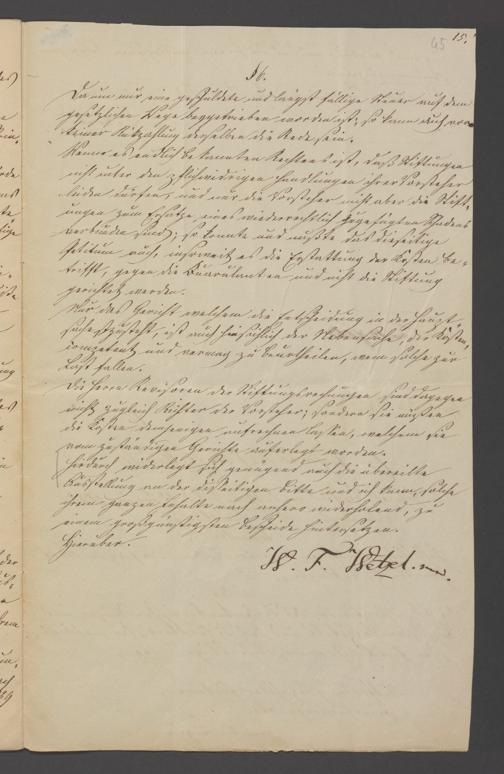 15.
45
§ 6.
Da nun nur eine geschuldete und längst fällige Steuer auf dem
gesetzlichen Wege beygetrieben worden ist; so kann auch von
keiner Rückzahlung derselben die Rede sein.
Wenn es endlich bekannten Rechtens ist, daß Stiftungen
nicht unter den pflichtwidrigen Handlungen ihrer Vorsteher
leiden dürfen, und nur die Vorsteher nicht aber die Stift-
ungen zum Ersatze eines widerrechtlich zugefügten Schadens
verbunden sind; so konnte und mußte das dieseitige
Petitum auch, insoweit es die Erstattung der Kosten be-
trifft, gegen die Quärulanten und nicht die Stiftung
gerichtet werden.
Nur das Gericht welchem die Entscheidung in der Haupt-
sache zusteht, ist auch hinsichtlich der Nebensache, der Kosten,
competent und vermag zu beurtheilen, wem solche zur
Last fallen.
Die Herrn Revisoren der Stiftungsrechnungen sind dagegen
nicht zugleich Richter der Vorsteher; sondern sie müssen
die Kosten demjenigen aufrechnen lassen, welchem sie
vom zuständigen Gerichte auferlegt worden.
Hierdurch widerlegt sich genügend auch die übereilte
Ausstellung an der dieseitigen Bitte und ich kann, solche
ihrem ganzen Inhalte nach anhero wiederholend, zu
einem großgünstigsten Bescheide hinterstellen.
Hierüber.
W. F. Wetzel.